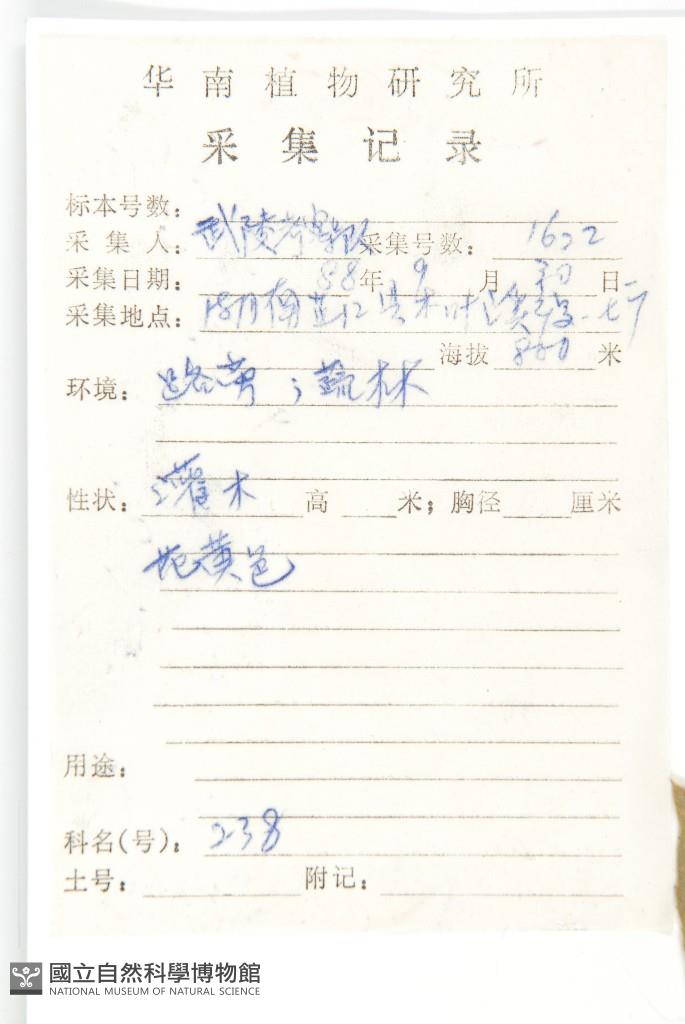 华南植物研究所
采集记录
标本号数：
采集人：武陵考察队 采集号数：1622
采集日期：88年9月30日
采集地点：湖南芷江
海拔800米
环境：路旁；疏林
性状：灌木 高 米；胸径 厘米
花黄色
用途：
科名(号)：238
土号： 附记：
國立自然科學博物館
NATIONAL MUSEUM OF NATURAL SCIENCE